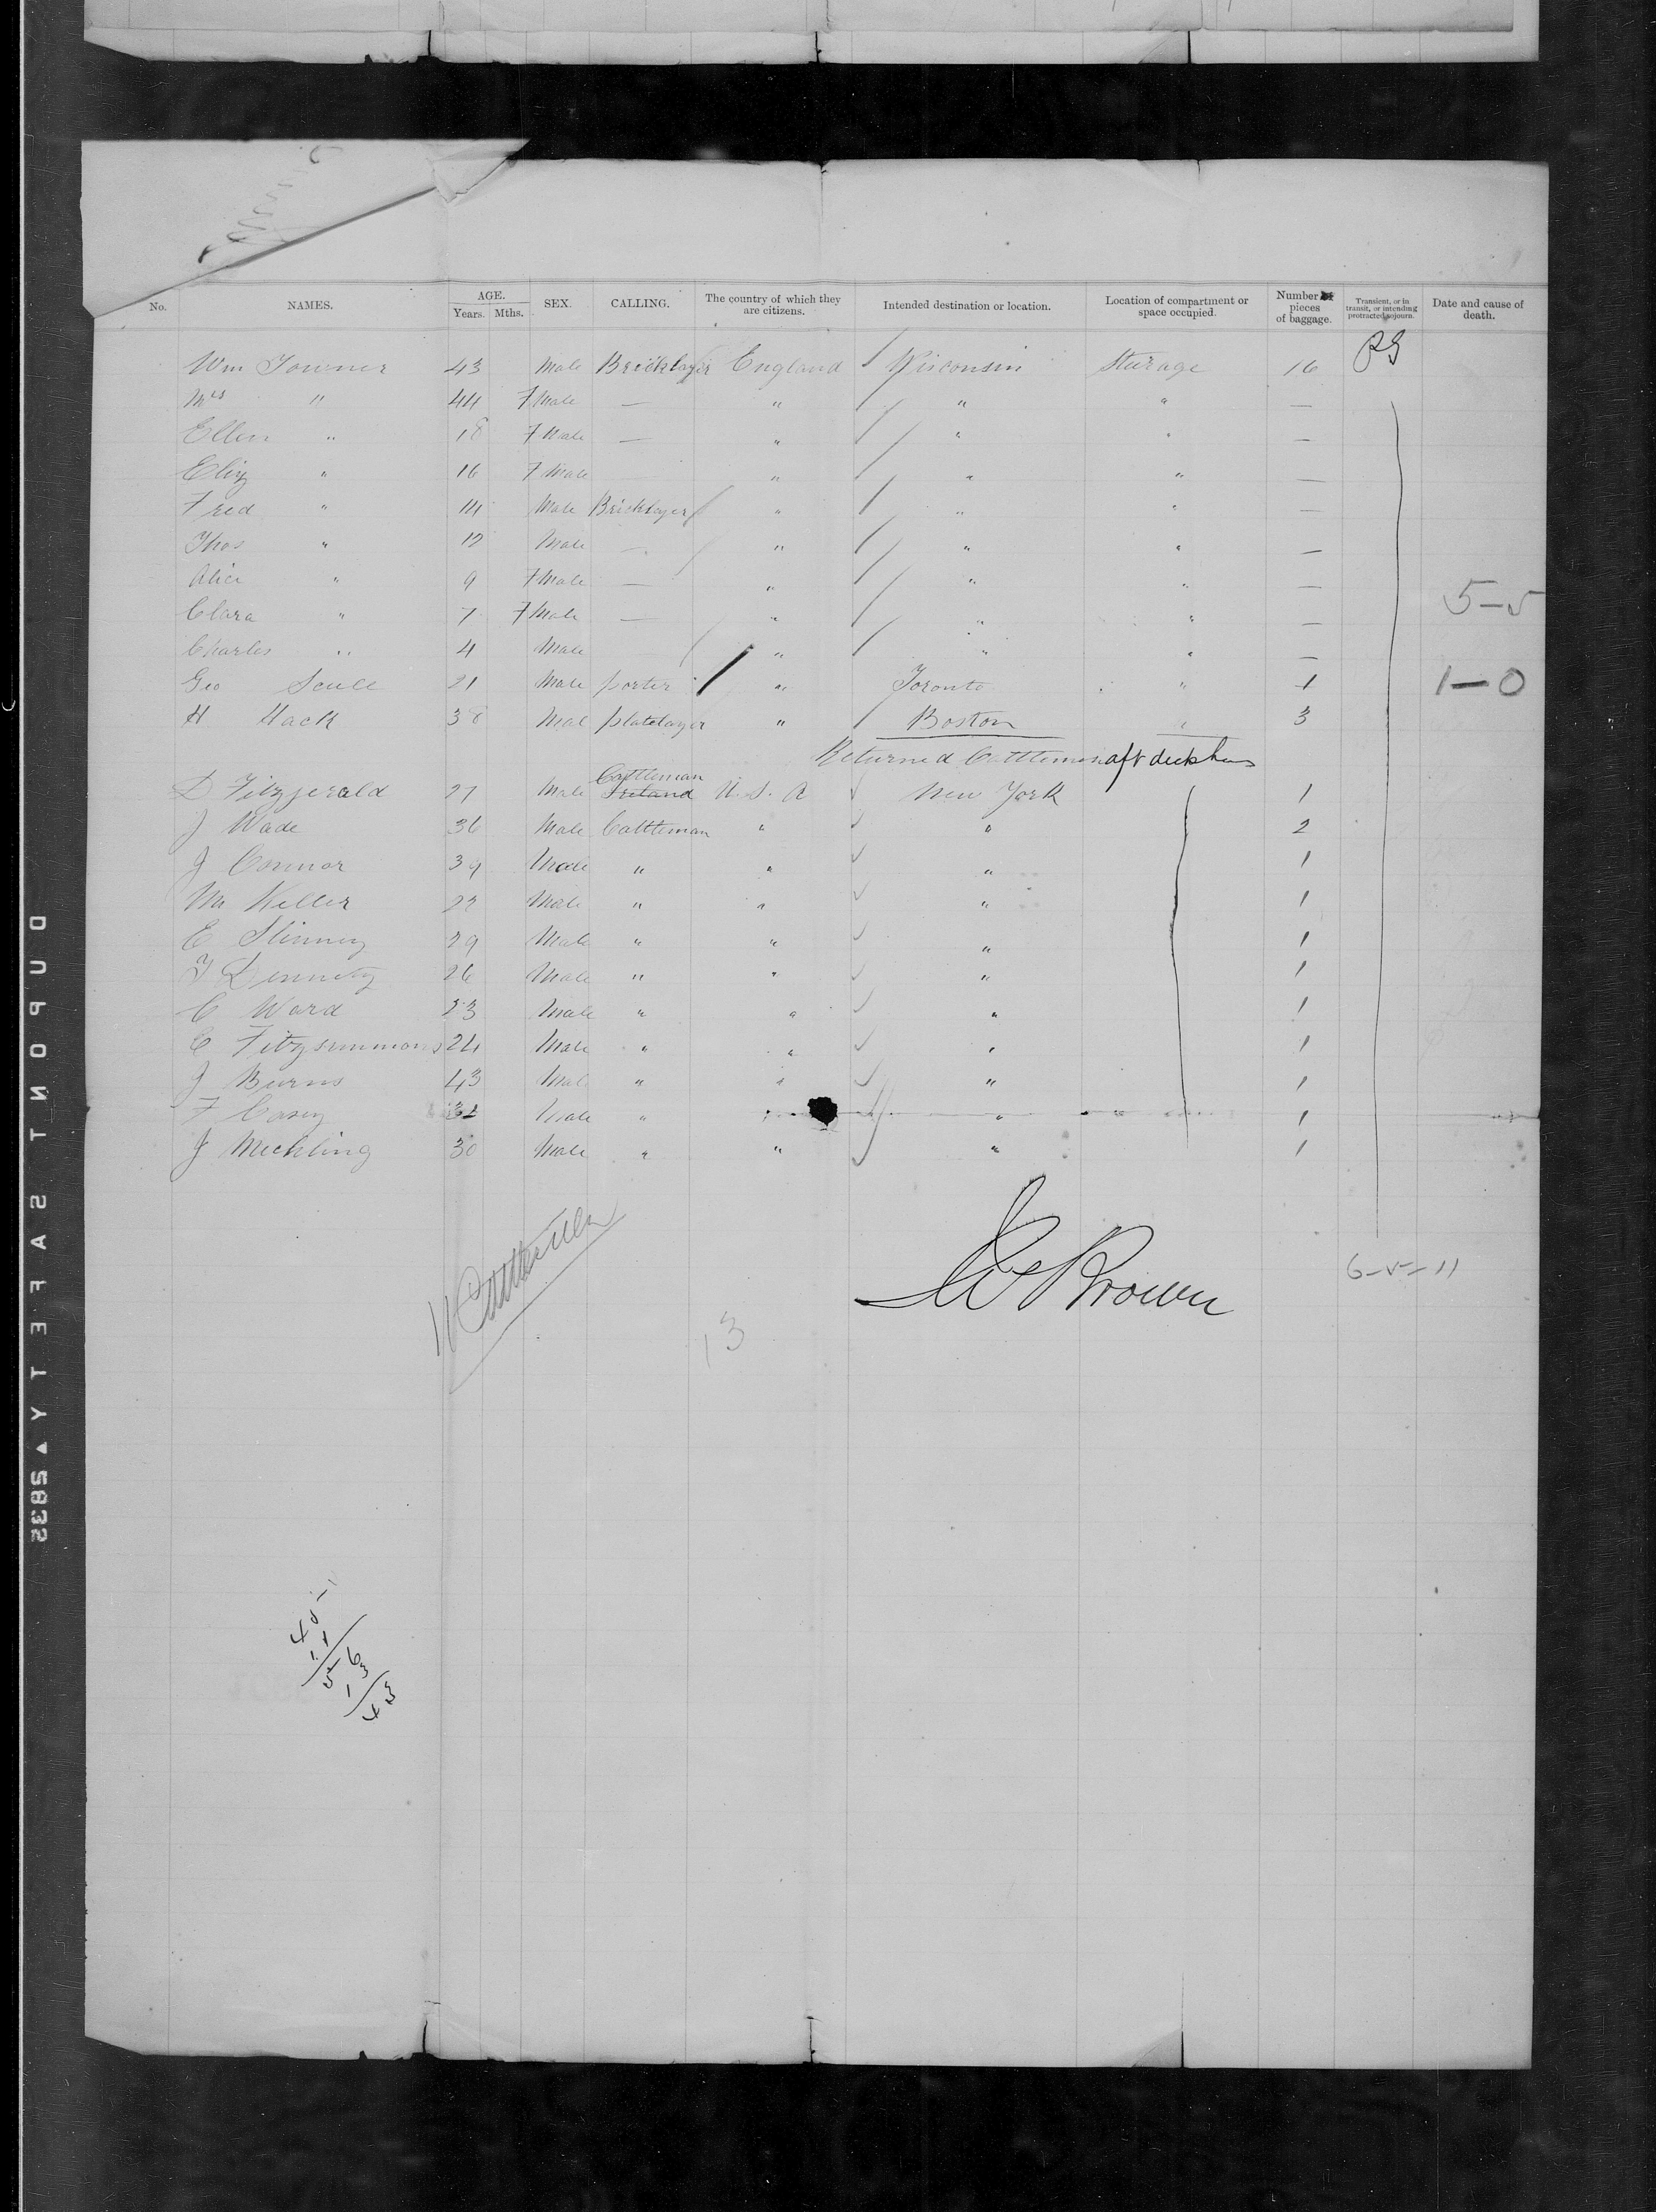 No. NAMES. AGE. Years. Mths. SEX. CALLING. The country of which they are citizens. Intended destination or location. Location of compartment or space occupied. Number of pieces of baggage. Transient, or in transit, or intending protracted sojourn. Date and cause of death.
Wm Towner 43 Male Bricklayer England Wisconsin Sturage 16 PS
Mrs " 44 F Male — " " " —
Ellen " 18 F Male — " " " —
Eliz " 16 F Male " " " —
Fred " 14 Male Bricklayer " " " —
Thos " 12 Male — " " " —
Alice " 9 F Male — " " " —
Clara " 7 F Male — " " " — 5-5
Charles " 4 Male " " " —
Geo 21 Male porter " Toronto " 1 1-0
H Mack 38 Mal platelayer " Boston " 3
Returned Cattlemen aft
D Fitzgerald 27 Male Cattleman Ireland U. S. A New York 1
J Wade 36 Male Cattleman " " 2
J Connor 39 Male " " " 1
M Keller 22 Male " " " 1
E 29 Male " " " 1
T Dennety 26 Male " " " 1
C Ward 23 Male " " " 1
C Fitzsummons 24 Male " " " 1
J Burns 43 Male " " " 1
F Casey 32 Male " " " 1
J Mechling 30 Male " " " 1
11 Cattlemen
13
Brown
6-5-11
45
11
56
13
43
DUPONT SAFETY 5832